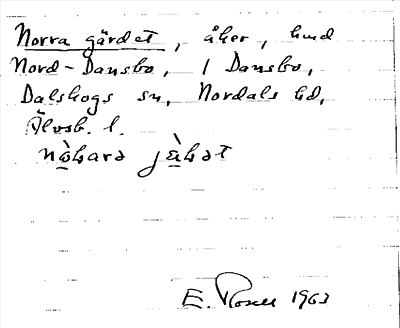 Norra gärdet, åker, hmd
Nord-Dansbo, / Dansbo,
Dalskogs sn, Nordals hd,
Älvsb. l.
E. Rosell 1963